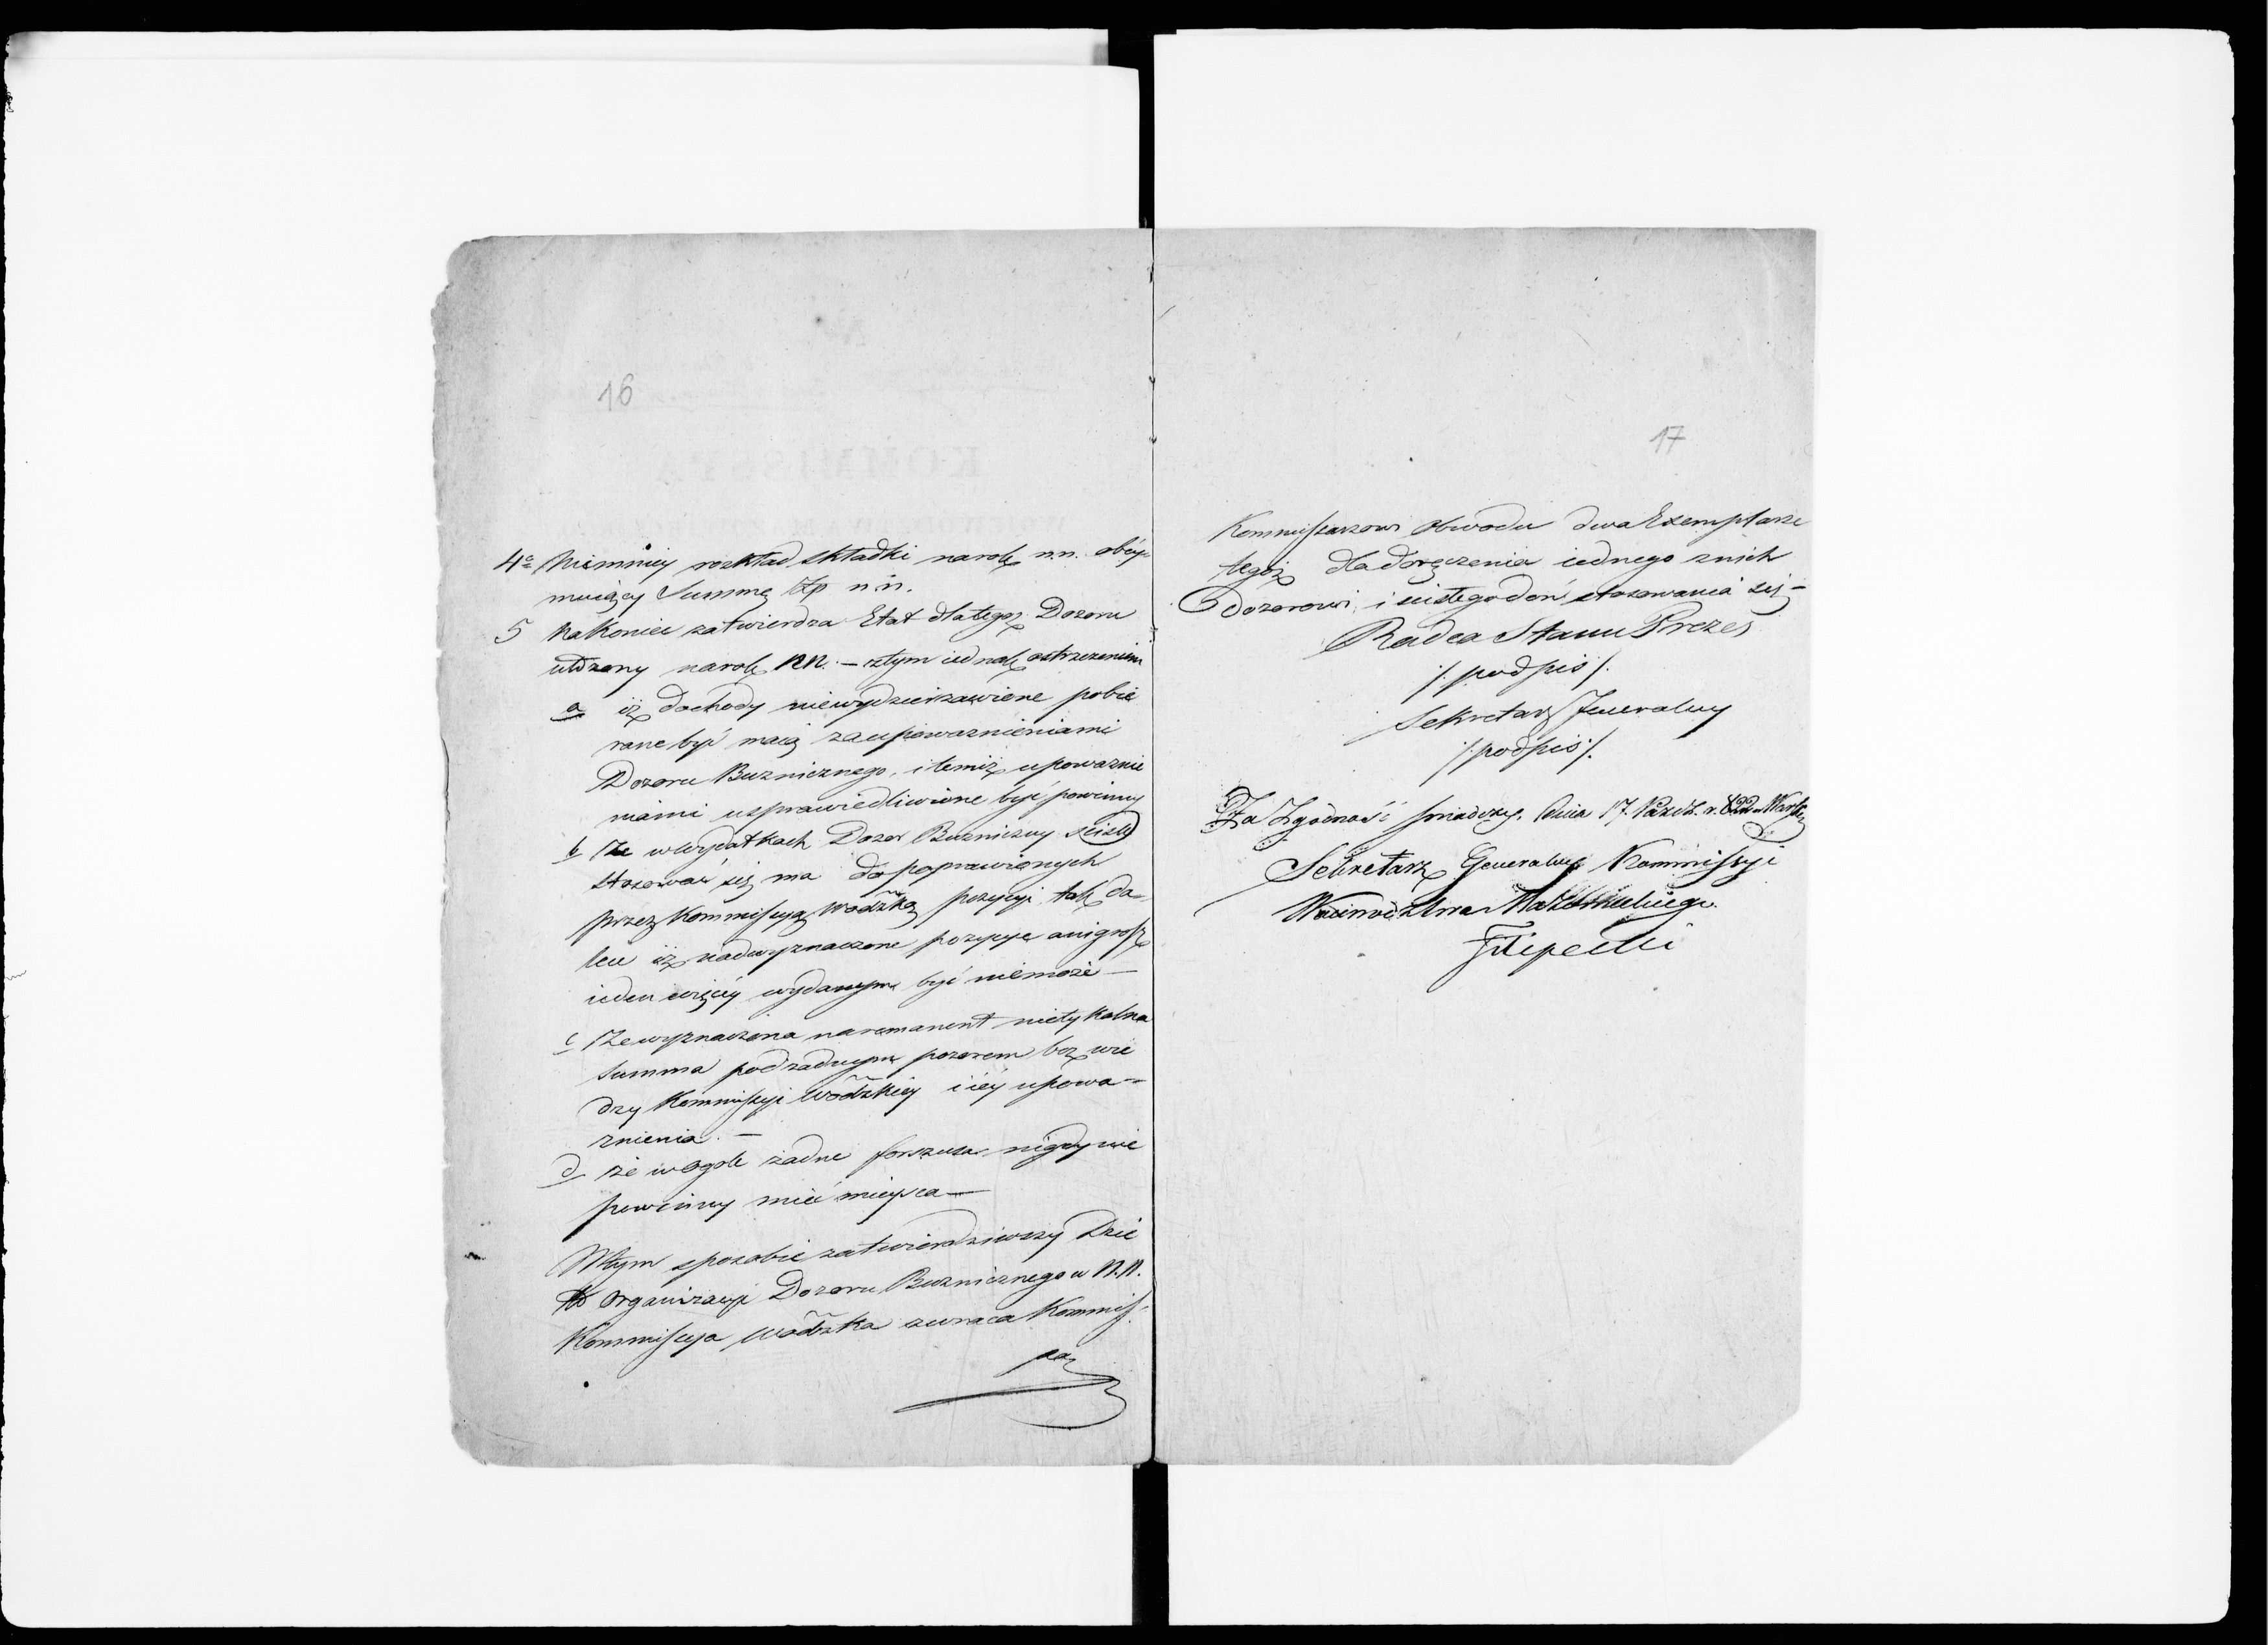 16
4o Niemniey rozkład składki na rok n.n. obey-
muiący Summę Złp n.n.
5 Nakoniec zatwierdza Etat dla tegoż Dozoru
ułożony na rok NN. — z tym iednak ostrzeżeniem
a iż dochody niewydzierżawione pobie
rane być maią za upoważnieniami
Dozoru Buzniczego, i temiż upoważnie
niami usprawiedliwione być powinny
b że w wydatkach Dozor Buzniczny ściśle
stosować się ma do poprawionych
przez Kommissyą Wodzką pozycyi tak da-
lece iż nad wyznaczone pozycye ani grosz
ieden więcey wydanym być niemoże —
c że wyznaczona na remanent nietykalna
summa pod żadnym pozorem bez wie
dzy Kommissyi Wodzkiey i iey upowa-
żnienia. —
d że w ogole żadne forszusa nigdy nie
powinny mieć mieysca —
W tym sposobie zatwierdziwszy Dzie
ło Organizacyi Dozoru Buznicznego w N.N.
Kommissya Wodzka zwraca Kommis-
sa
17
Kommissarzowi Obwodu dwa Exemplarze
tegoż dla doręczenia iednego z nich
Dozorowi i ścisłego doń stosowania się —
Radca Stanu Prezes
/: podpis /.
Sekretarz Jeneralny
/: podpis :/.
Za Zgodność świadczy. Dnia 17. Paźdz. r. 822 w
Sekretarz Generalny Kommissyi
Woiewództwa Mazowieckiego.
Filipecki